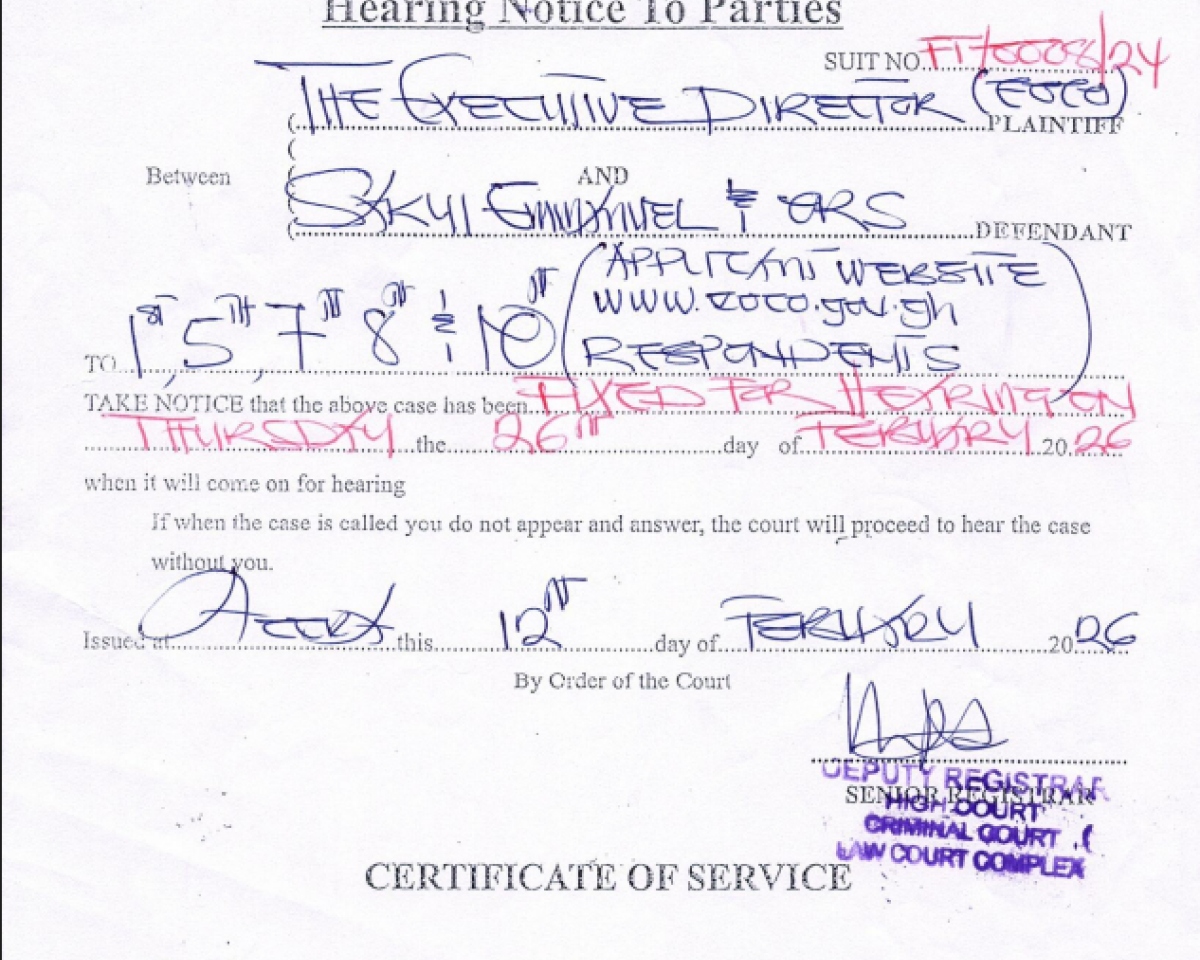 Hearing Notice To Parties
SUIT NO. FT/0008/24
THE EXECUTIVE DIRECTOR (EOCO)
PLAINTIFF
Between
AND
EMMANUEL & ORS
DEFENDANT
(APPLICANT WEBSITE
www.eoco.gov.gh
TO 1ST, 5TH, 7TH 8TH & 10TH
RESPONDENTS
TAKE NOTICE that the above case has been FIXED FOR HEARING ON
THURSDAY the 26TH day of FEBRUARY 2026
when it will come on for hearing
If when the case is called you do not appear and answer, the court will proceed to hear the case
without you.
Issued at ACCRA this 12TH day of FEBRUARY 2026
By Order of the Court
DEPUTY REGISTRAR
SENIOR REGISTRAR
HIGH COURT
CRIMINAL COURT
LAW COURT COMPLEX
CERTIFICATE OF SERVICE